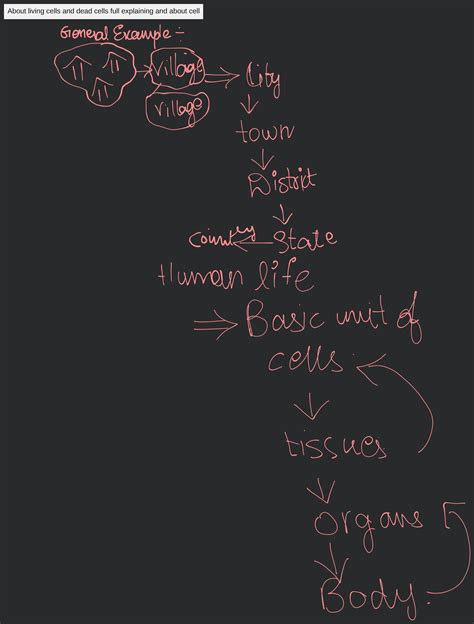 About living cells and dead cells full explaining and about cell
General Example :-
village → City
village
town
District
Country ← State
Human life
⇒ Basic unit of
cells
tissues
organs
Body